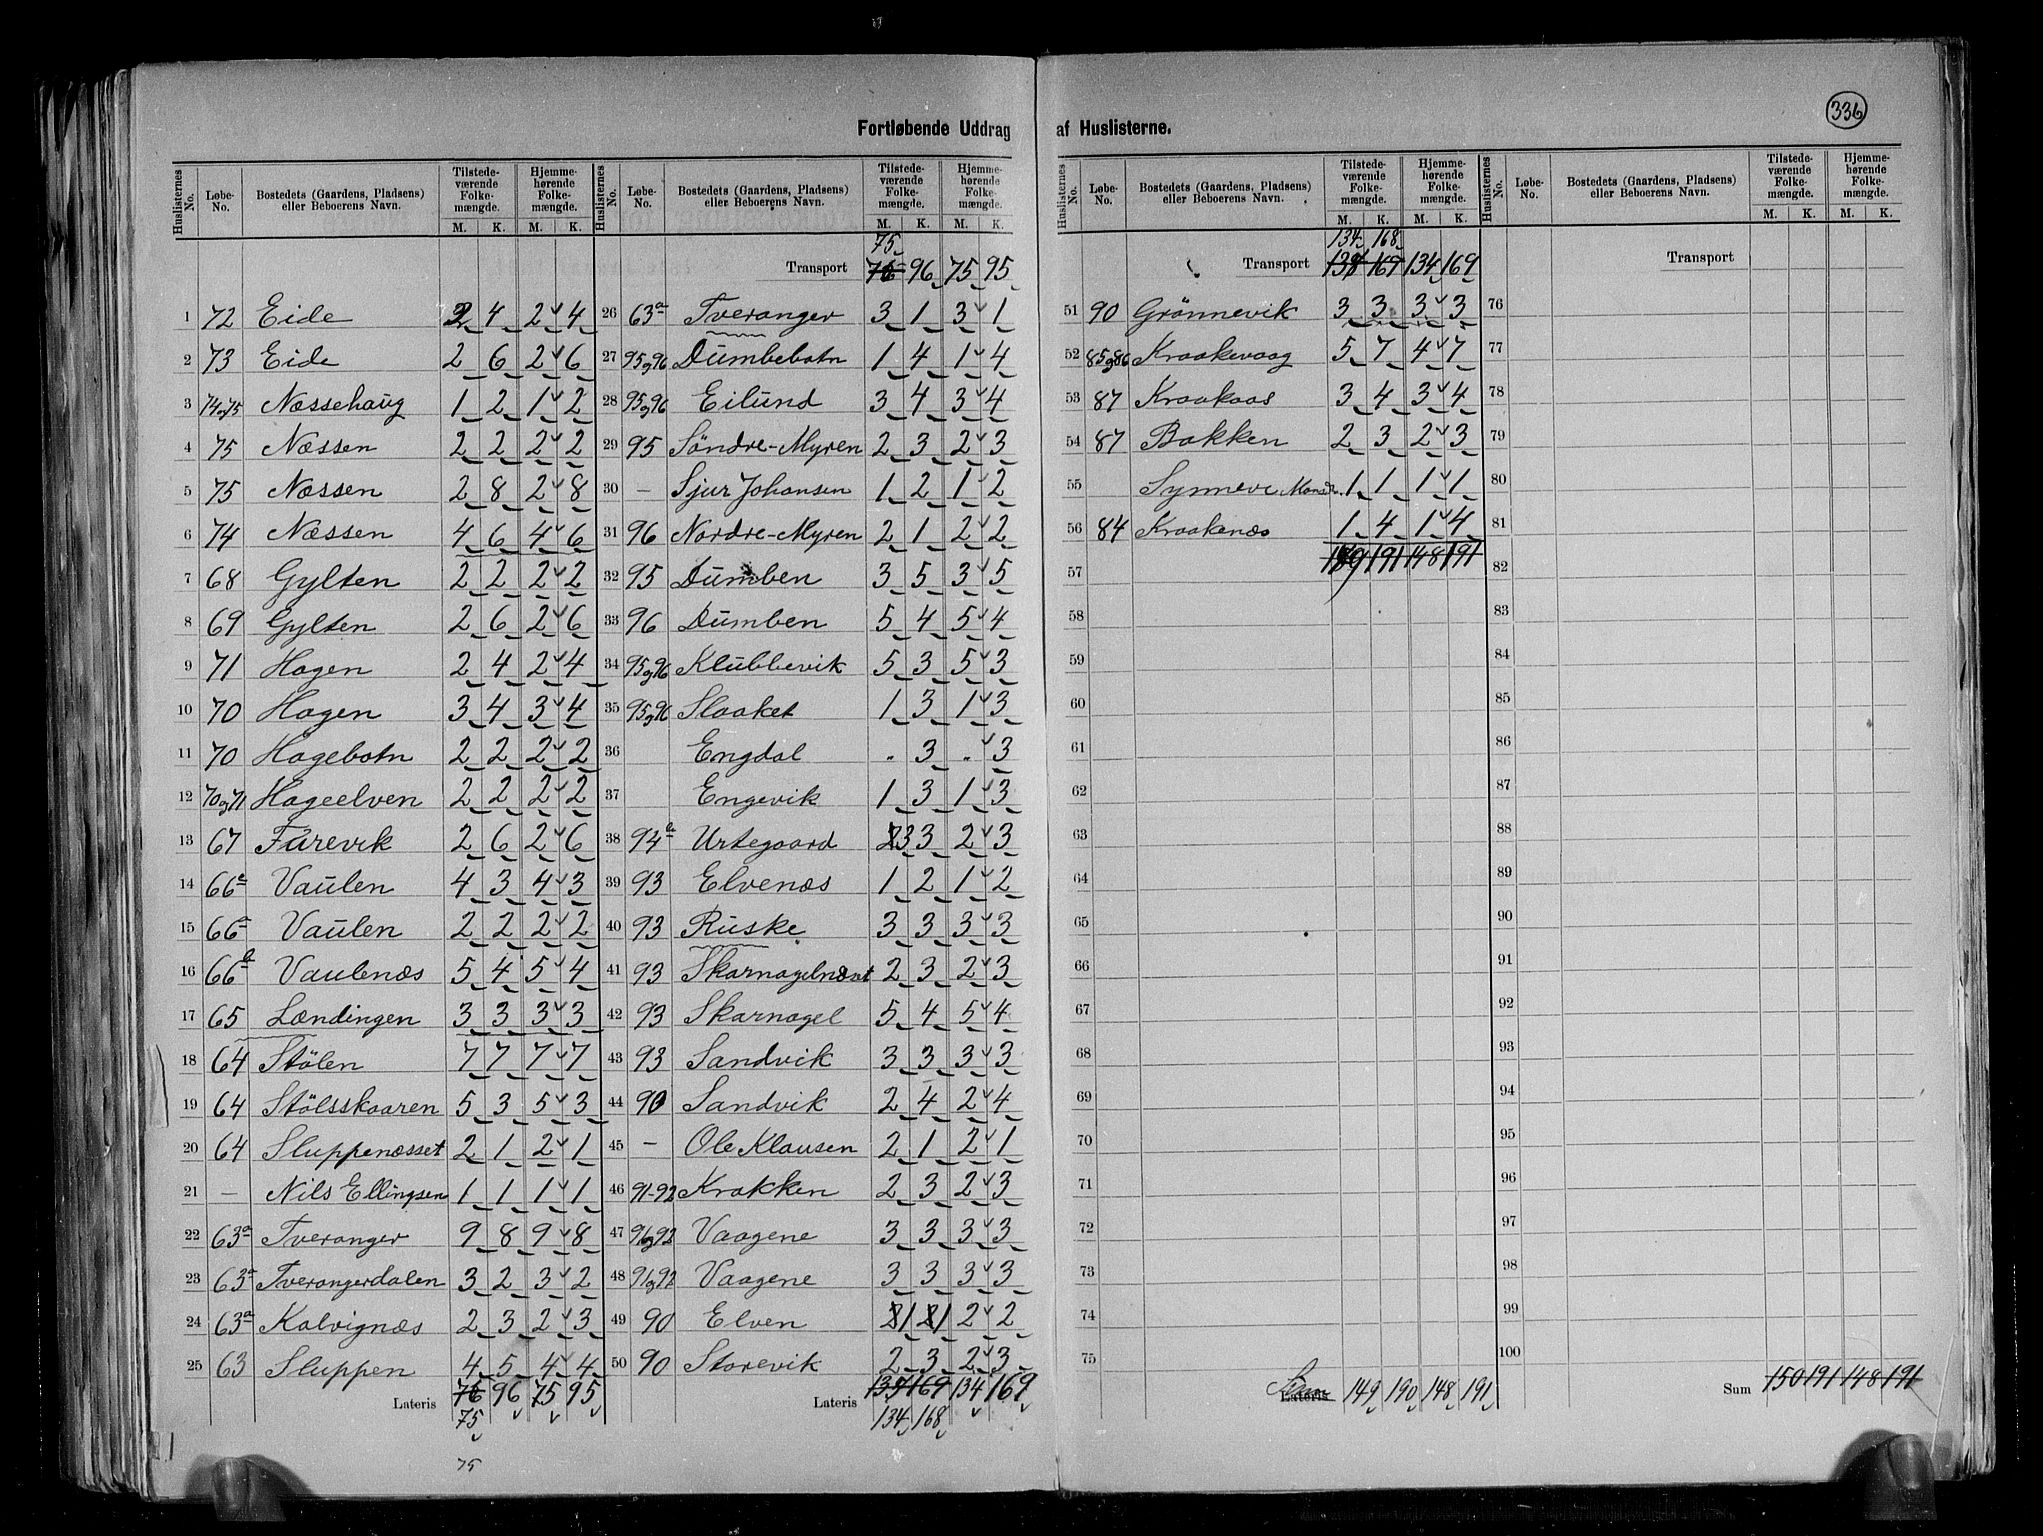 336
Fortløbende Uddrag af Huslisterne.
Huslisternes No. Løbe-No. Bostedets (Gaardens, Pladsens) eller Beboerens Navn. Tilstedeværende Folkemængde. M. K. Hjemmehørende Folkemængde. M. K.
1 72 Eide 2 4 2 4
2 73 Eide 2 6 2 6
3 74og75 Næssehaug 1 2 1 2
4 75 Næssen 2 2 2 2
5 75 Næssen 2 8 2 8
6 74 Næssen 4 6 4 6
7 68 Gylten 2 2 2 2
8 69 Gylten 2 6 2 6
9 71 Hagen 2 4 2 4
10 70 Hagen 3 4 3 4
11 70 Hagebotn 2 2 2 2
12 70og71 Hageelven 2 2 2 2
13 67 Furevik 2 6 2 6
14 66a Vaulen 4 3 4 3
15 66 Vaulen 2 2 2 2
16 66a Vaulenæs 5 4 5 4
17 65 Lændingen 3 3 3 3
18 64 Stölen 7 7 7 7
19 64 Stölsskaaren 5 3 5 3
20 64 Sluppenæsset 2 1 2 1
21 – Nils Ellingsen 1 1 1 1
22 63a Tveranger 9 8 9 8
23 63a Tverangerdalen 3 2 3 2
24 63a Kalvignæs 2 3 2 3
25 63 Sluppen 4 5 4 4
Lateris 76 96 75 95
75
75
Huslisternes No. Løbe-No. Bostedets (Gaardens, Pladsens) eller Beboerens Navn. Tilstedeværende Folkemængde. M. K. Hjemmehørende Folkemængde. M. K.
75
Transport 76 96 75 95
26 63a Tveranger 3 1 3 1
27 95og96 Dumbebotn 1 4 1 4
28 95og96 Eilund 3 4 3 4
29 95 Söndre-Myren 2 3 2 3
30 – Sjur Johansen 1 2 1 2
31 96 Nordre-Myren 2 1 2 2
32 95 Dumben 3 5 3 5
33 96 Dumben 5 4 5 4
34 95og96 Klubbevik 5 3 5 3
35 95og96 Slaaket 1 3 1 3
36 Engdal . 3 . 3
37 Engevik 1 3 1 3
38 94a Urtegaard 3 3 2 3
39 93 Elvenæs 1 2 1 2
40 93 Ruske 3 3 3 3
41 93 Skarnagelnæset 2 3 2 3
42 93 Skarnagel 5 4 5 4
43 93 Sandvik 3 3 3 3
44 90 Sandvik 2 4 2 4
45 – Ole Klausen 2 1 2 1
46 91-92 Krakken 2 3 2 3
47 og92 Vaagene 3 3 3 3
48 91og92 Vaagene 3 3 3 3
49 90 Elven 1 1 2 2
50 90 Storevik 2 3 2 3
Lateris 169 134 169
134 168
Huslisternes No. Løbe-No. Bostedets (Gaardens, Pladsens) eller Beboerens Navn. Tilstedeværende Folkemængde. M. K. Hjemmehørende Folkemængde. M. K.
134 168
Transport 169 134 169
51 90 Grönnevik 3 3 3 3
52 85og86 Kraakevaag 5 7 4 7
53 87 Kraakaas 3 4 3 4
54 87 Bakken 2 3 2 3
55 Synneve 1 1 1 1
56 84 Kraakenæs 1 4 1 4
57 191 148 191
58
59
60
61
62
63
64
65
66
67
68
69
70
71
72
73
74
75
Sum Lateris 149 190 148 191
Huslisternes No. Løbe-No. Bostedets (Gaardens, Pladsens) eller Beboerens Navn. Tilstedeværende Folkemængde. M. K. Hjemmehørende Folkemængde. M. K.
Transport
76
77
78
79
80
81
82
83
84
85
86
87
88
89
90
91
92
93
94
95
96
97
98
99
100
Sum 150 191 148 191